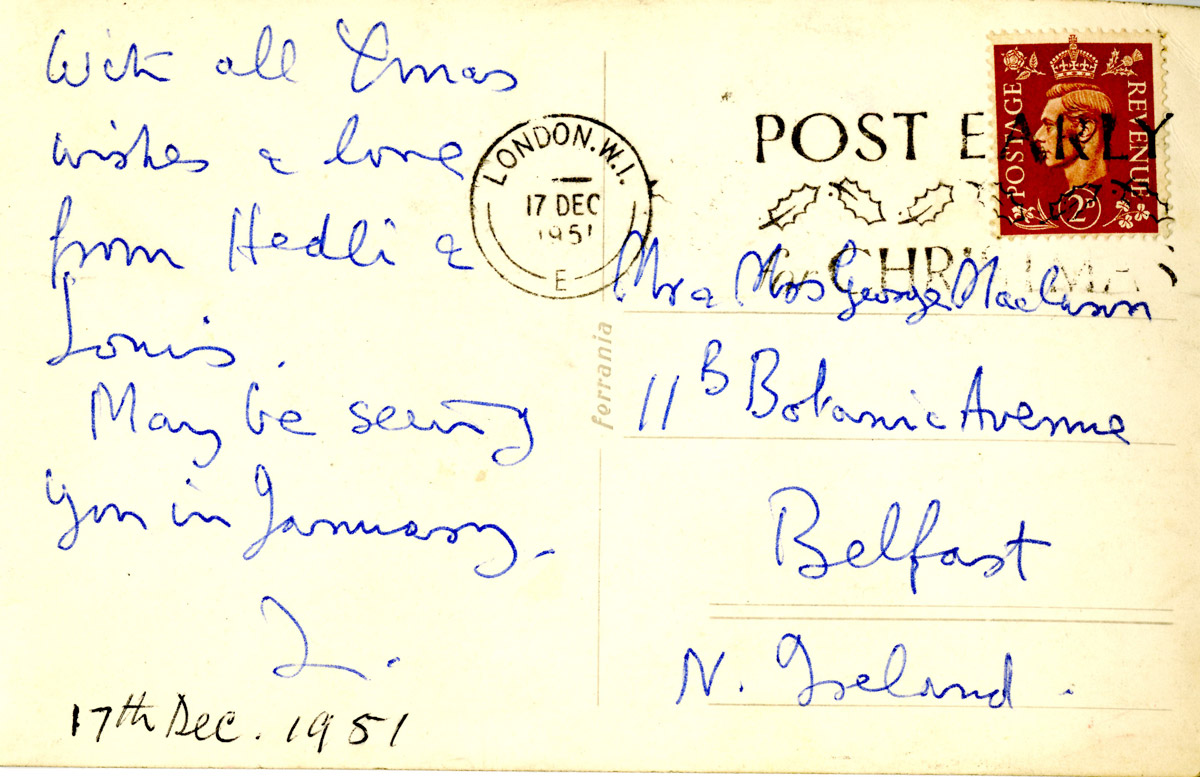 With all Xmas
wishes & love
from Hedli &
Louis.
May be seeing
you in January.
L.
17th Dec. 1951
LONDON.W.1.
17 DEC
1951
E
POST EARLY
for CHRISTMAS
POSTAGE
REVENUE
2D
Ferrania
Mr & Mrs George MacCann
11B Botanic Avenue
Belfast
N. Ireland.